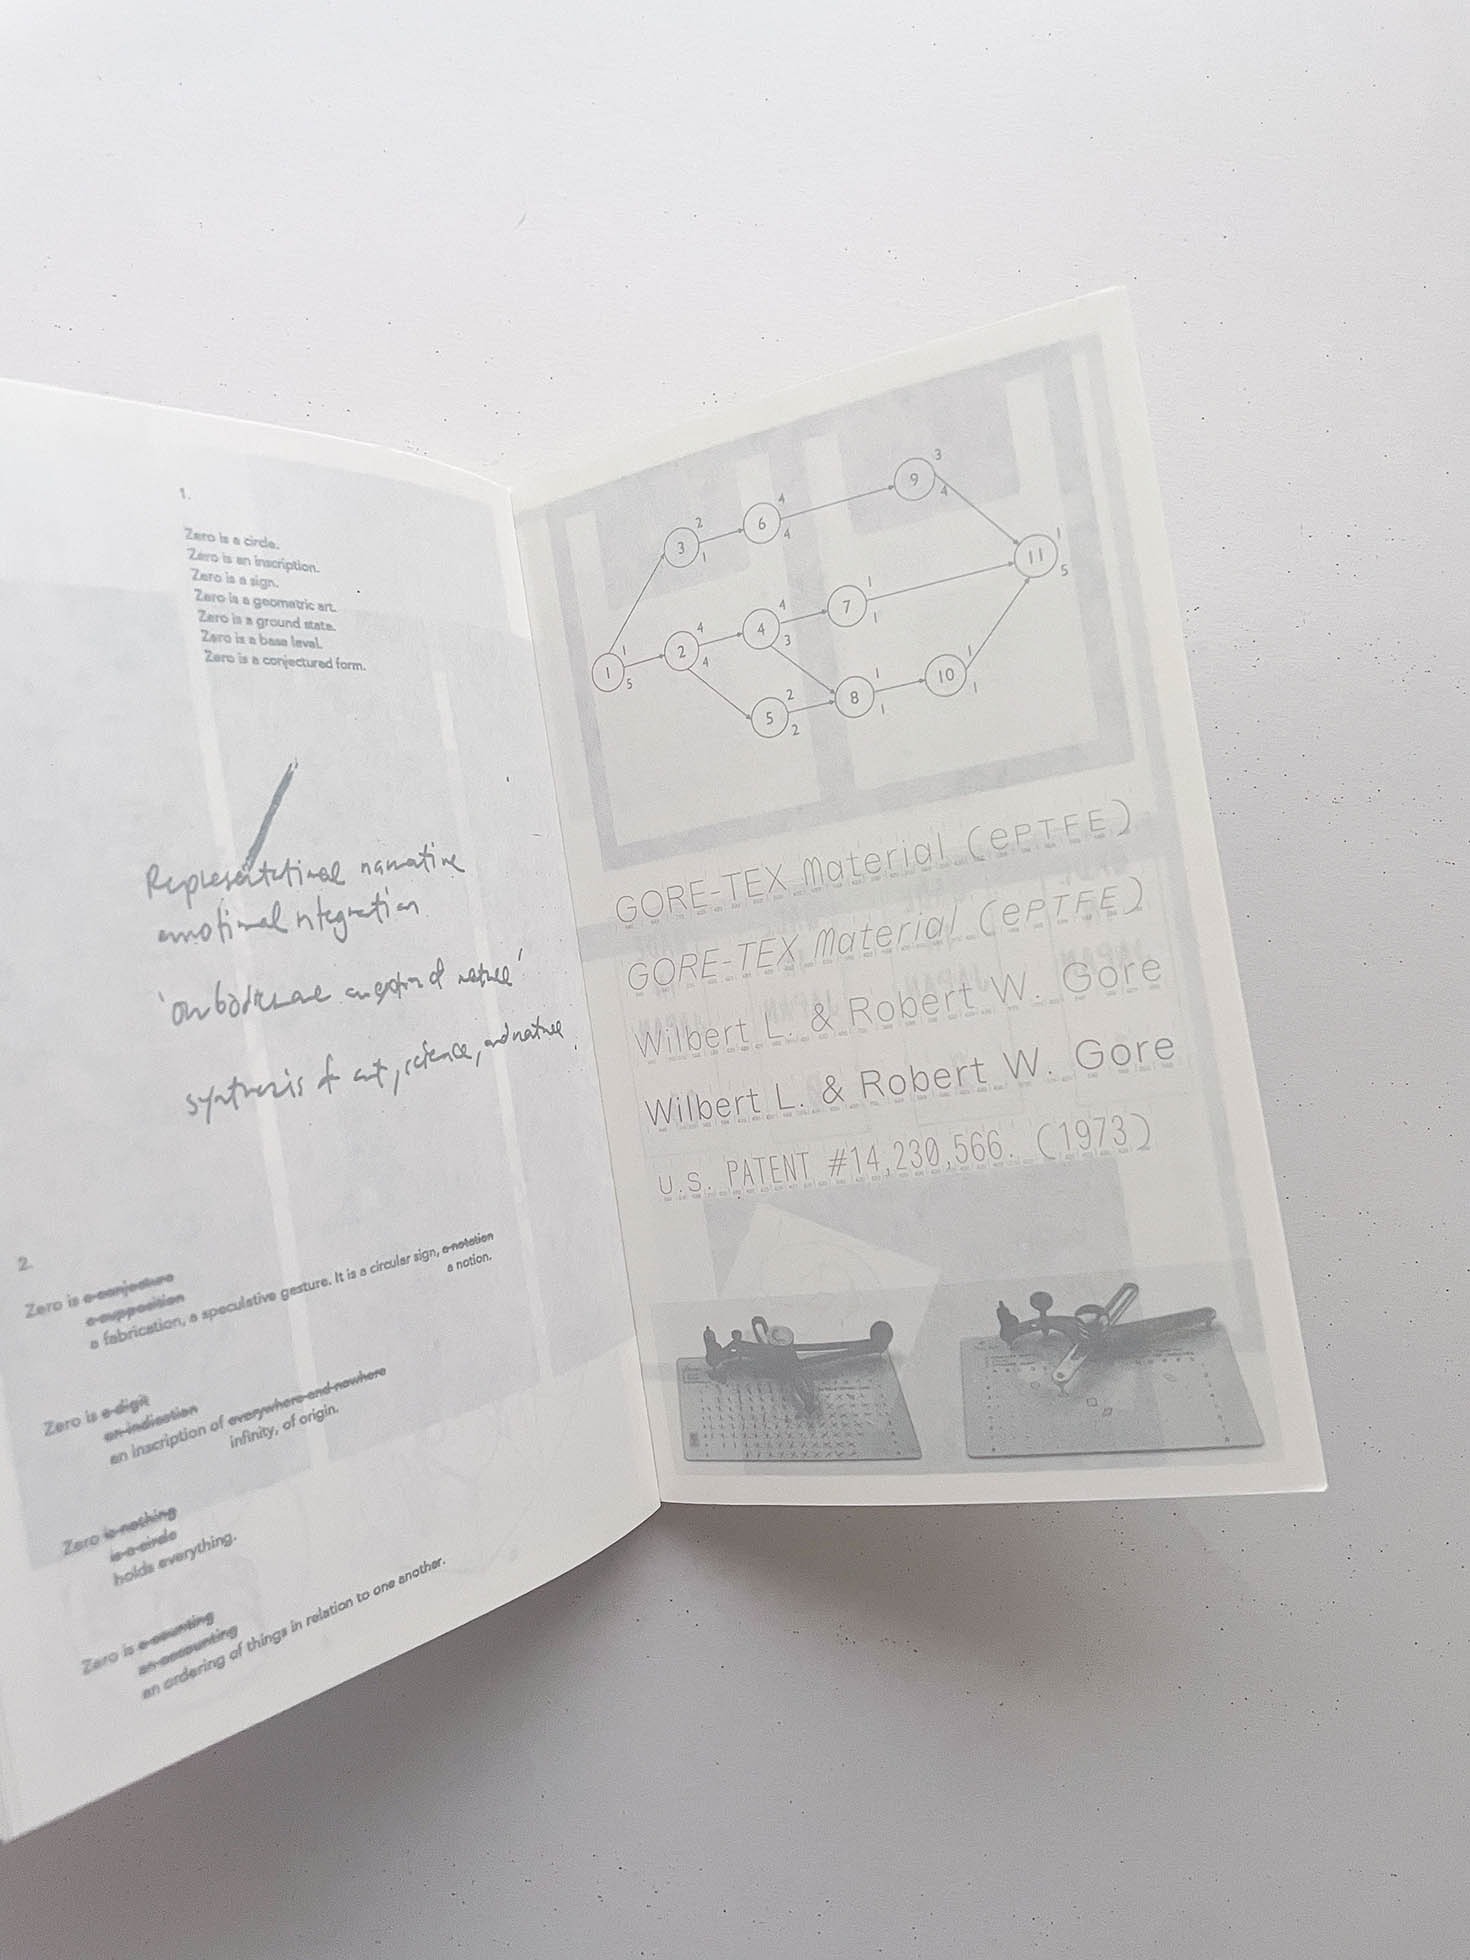 1.
Zero is a circle.
Zero is an inscription.
Zero is a sign.
Zero is a geometric art.
Zero is a ground state.
Zero is a base level.
Zero is a conjectured form.
Representational narrative
emotional integration
'our bodies are an of nature'
synthesis of art, science, and nature.
2.
Zero is a conjecture
a supposition
a fabrication, a speculative gesture. It is a circular sign, a notation
a notion.
Zero is a digit
an indication
an inscription of everywhere and nowhere
infinity, of origin.
Zero is nothing
is a circle
holds everything.
Zero is a counting
an accounting
an ordering of things in relation to one another.
9 3 4
3 2 1
6 4 4
11 1 5
7 1 1
4 4 3
2 4 4
1 1 5
10 1 1
8 1 1
5 2 2
GORE-TEX Material (ePTFE)
GORE-TEX Material (ePTFE)
Wilbert L. & Robert W. Gore
Wilbert L. & Robert W. Gore
U.S. PATENT #14,230,566. (1973)